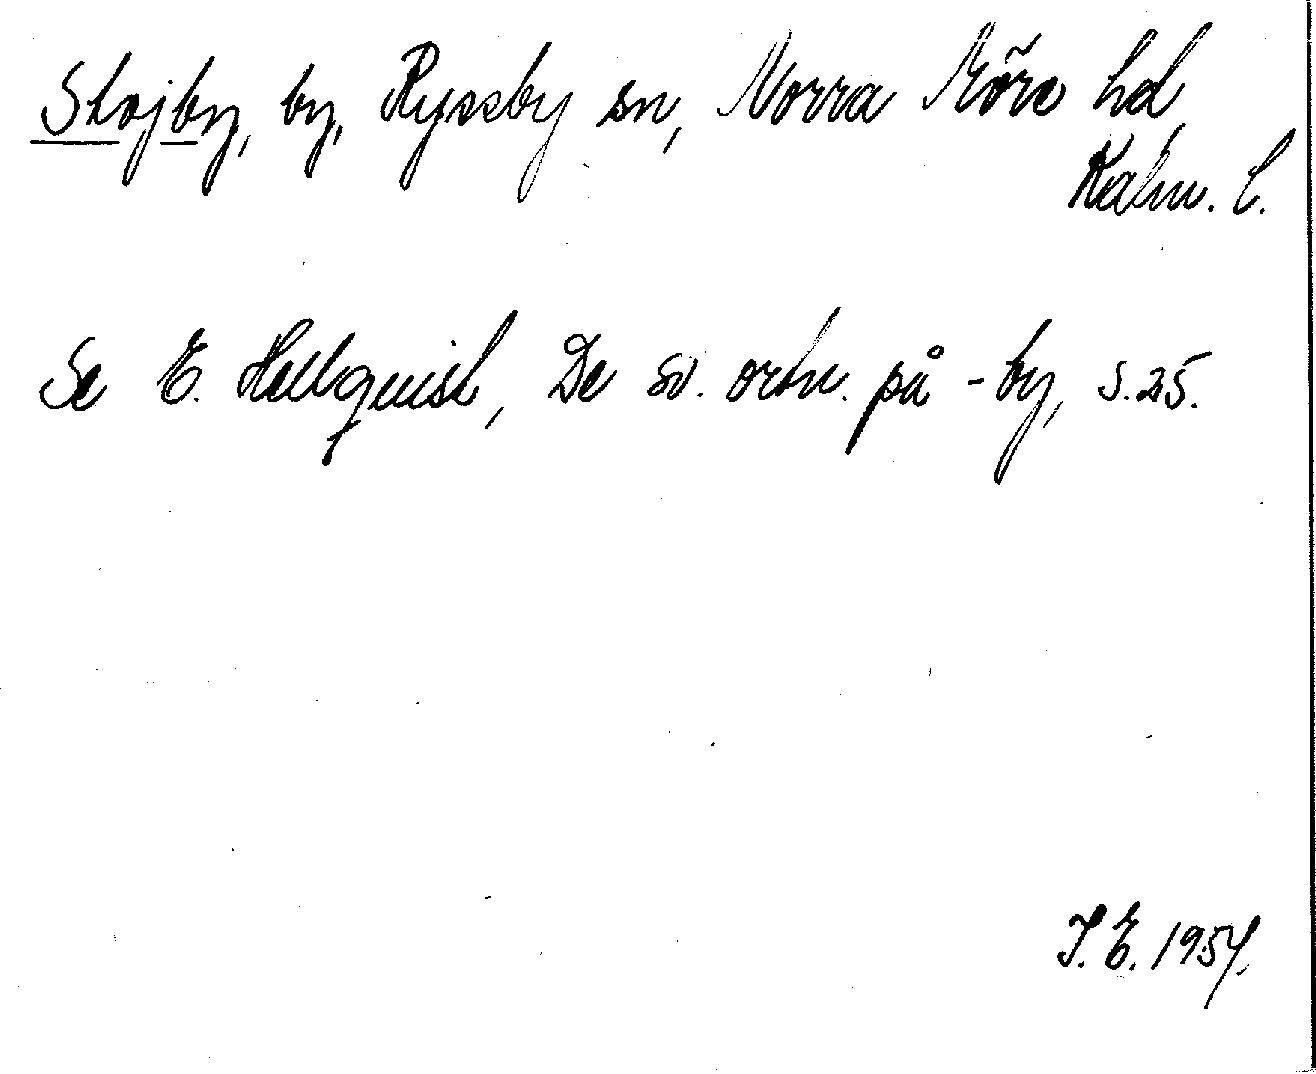 Stojby, by, Ryssby sn, Norra Möre hd,
Kalm. l.
Se E. Hellquist, De sv. ortn. på -by, s. 25.
I. E. 1954.